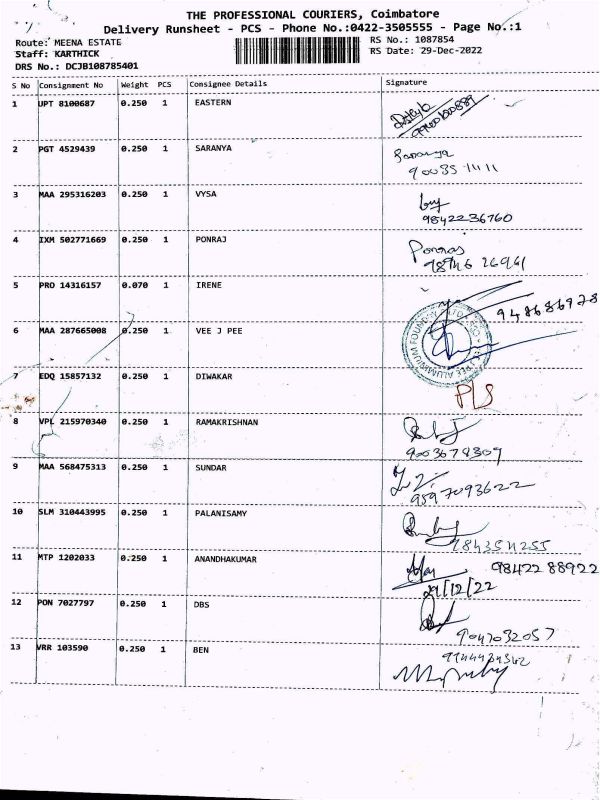 THE PROFESSIONAL COURIERS, Coimbatore
Delivery Runsheet - PCS - Phone No.:0422-3505555 - Page No.:1
Route: MEENA ESTATE RS No.: 1087854
Staff: KARTHICK RS Date: 29-Dec-2022
DRS No.: DCJB108785401
S No Consignment No Weight PCS Consignee Details Signature
1 UPT 8100687 0.250 1 EASTERN
2 PGT 4529439 0.250 1 SARANYA Saranya
90035 1411
3 MAA 295316203 0.250 1 VYSA
9842236760
4 IXM 502771669 0.250 1 PONRAJ Ponraj
5 PRO 14316157 0.070 1 IRENE
6 MAA 287665008 0.250 1 VEE J PEE
7 EDQ 15857132 0.250 1 DIWAKAR P/S
8 VPL 215970340 0.250 1 RAMAKRISHNAN
9003678309
9 MAA 568475313 0.250 1 SUNDAR
9597093622
10 SLM 310443995 0.250 1 PALANISAMY
11 MTP 1202033 0.250 1 ANANDHAKUMAR 98422 88922
29/12/22
12 PON 7027797 0.250 1 DBS
9047032057
13 VRR 103590 0.250 1 BEN